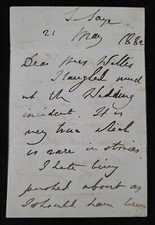 21 May 1882
Dear Mrs
I laughed much
at the Wedding
incident. It is
very true which
is rare in stories
I hate being
pushed about as
I should have been